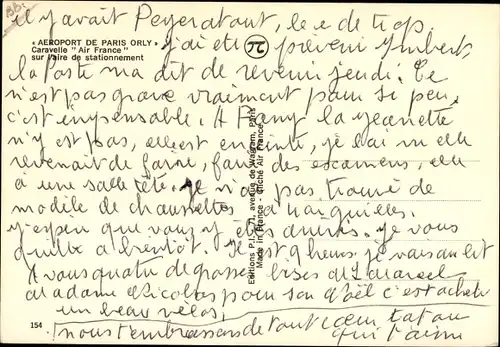 il y avait Peyratout, le e de trop.
« AEROPORT DE PARIS ORLY »
Caravelle "Air France"
sur l'aire de stationnement
j'ai été prévenir Imbert
la Poste m'a dit de revenir jeudi. Ce
n'est pas grave vraiment pour si peu,
c'est impensable. A la ginette
n'y est pas, elle est je l'ai vu elle
revenait de faire, faire des examens, elle
a une sale tête. Je n'ai pas trouvé de
modèle de chaussettes à 4 aiguilles.
j'espère que vous y êtes je vous
quitte à bientôt. Il est 9 heures je vais au lit
A vous quatre de grosses bises de
Madame Nicolas pour son Noël c'est acheter
un beau vélos,
nous t'embrassons de tout cœur
qui t'aime
154
Editions P.I. - 71, avenue de Wagram, Paris
Made in France - Cliché Air France